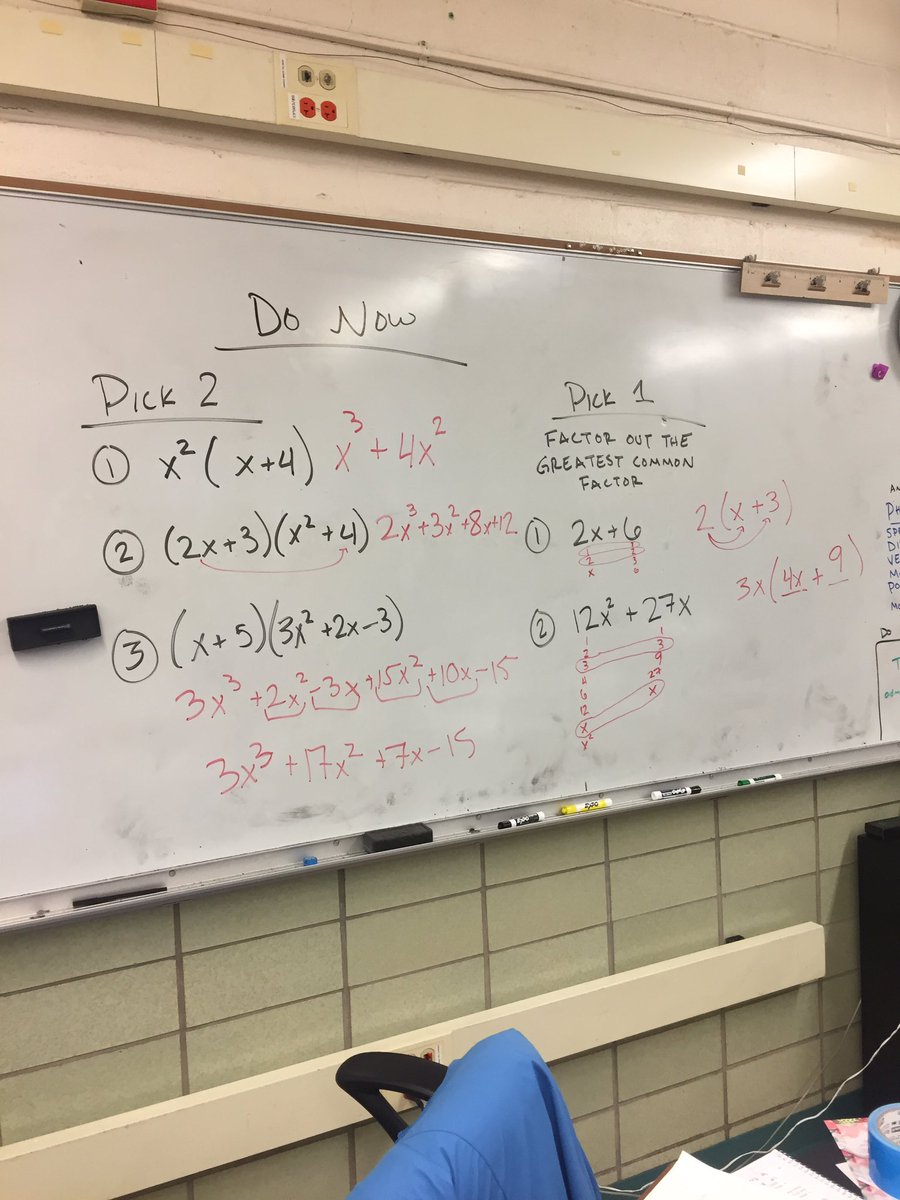 Do Now
Pick 2
① x²(x+4) x³+4x²
② (2x+3)(x²+4) 2x³+3x²+8x+12
③ (x+5)(3x²+2x-3)
3x³+2x²-3x+15x²+10x-15
3x³+17x²+7x-15
Pick 1
FACTOR OUT THE
GREATEST COMMON
FACTOR
① 2x+6 2(x+3)
1 1
2 2
x 3
6
② 12x²+27x 3x(4x+9)
1 1
2 3
3 9
4 27
6 x
12
x
x²
EXPO
EXPO